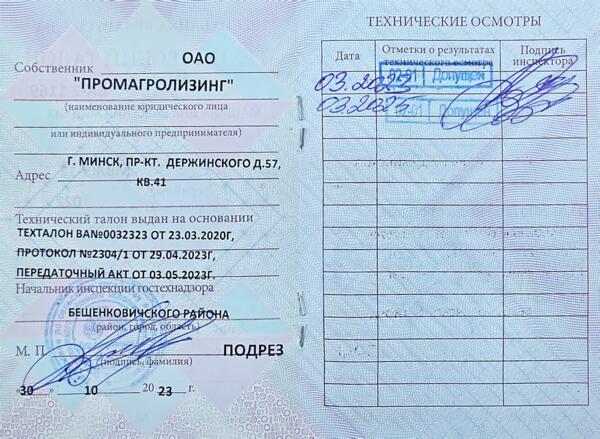 Собственник ОАО
"ПРОМАГРОЛИЗИНГ"
(наименование юридического лица
или индивидуального предпринимателя)
Адрес Г. МИНСК, ПР-КТ. ДЕРЖИНСКОГО Д.57,
КВ.41
Технический талон выдан на основании
ТЕХТАЛОН ВА№0032323 ОТ 23.03.2020г,
ПРОТОКОЛ №2304/1 ОТ 29.04.2023г,
ПЕРЕДАТОЧНЫЙ АКТ ОТ 03.05.2023г.
Начальник инспекции гостехнадзора
БЕШЕНКОВИЧСКОГО РАЙОНА
(район, город, область)
М. П. ПОДРЕЗ
(подпись, фамилия)
«30» 10 2023 г.
ТЕХНИЧЕСКИЕ ОСМОТРЫ
Дата Отметки о результатах технического осмотра Подпись инспектора
03.2023 02-01 Допущен
03.2025 Допущен